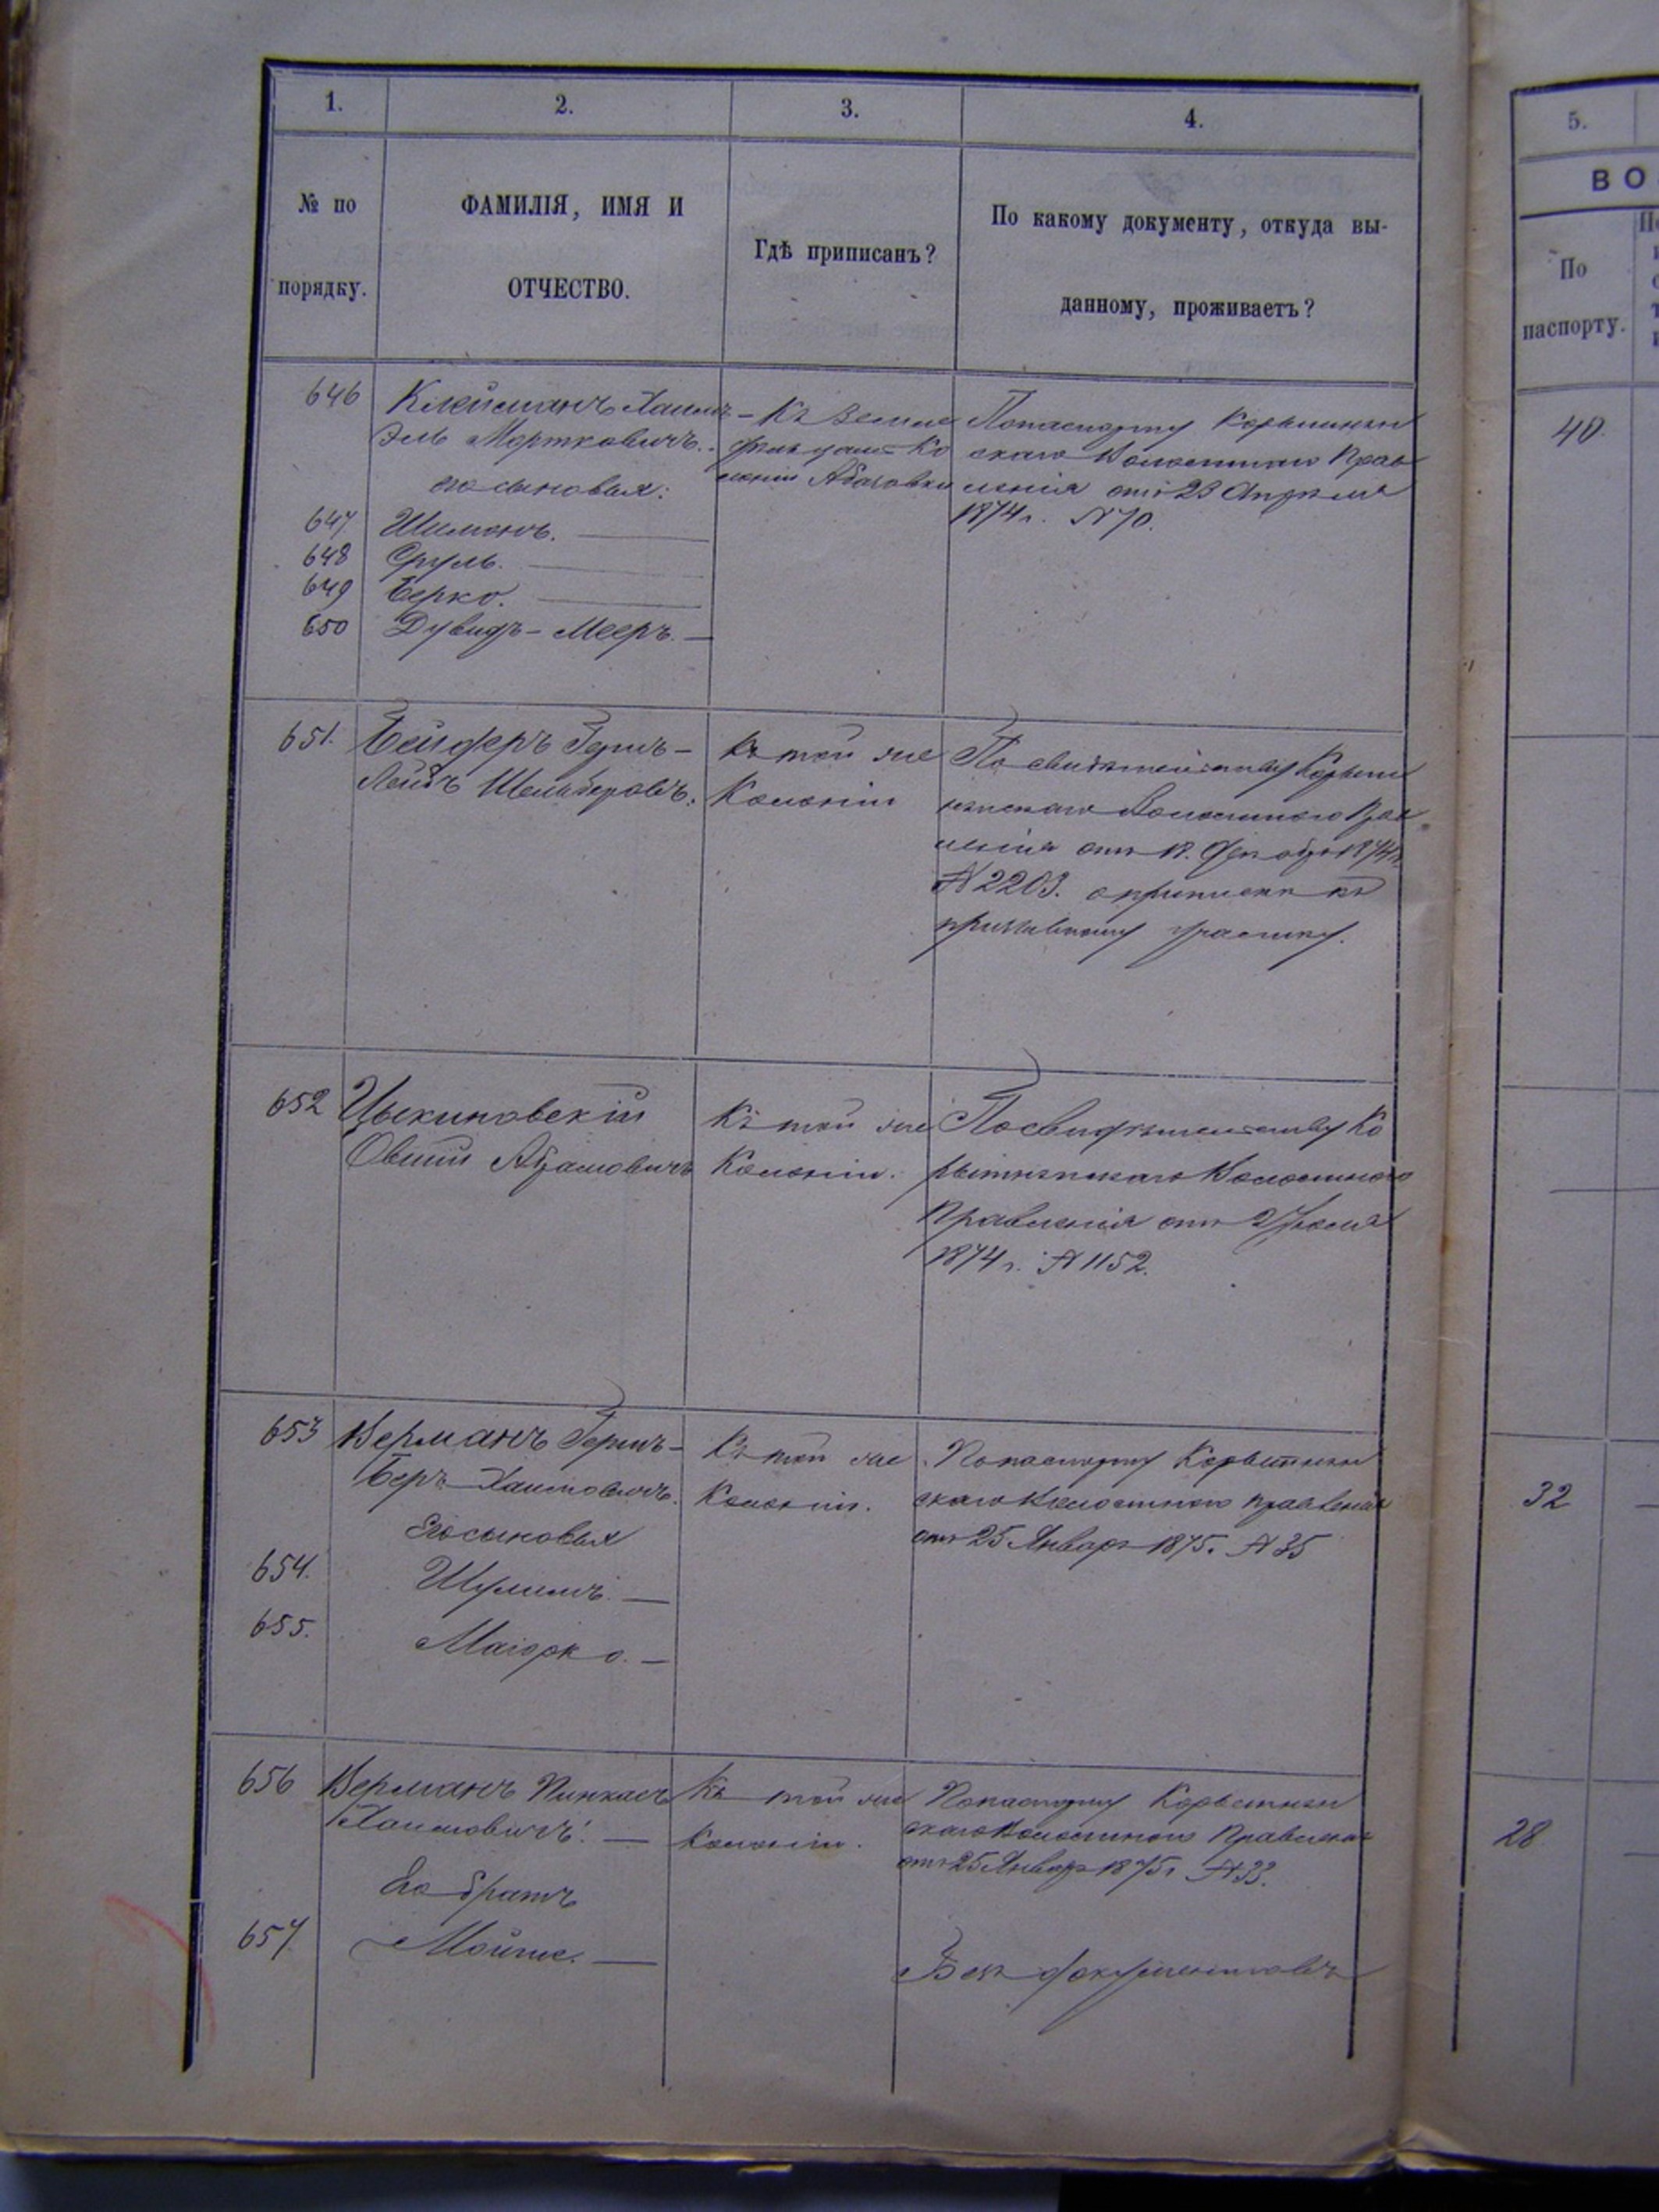 1. 2. 3. 4.
№ по порядку.
ФАМИЛІЯ, ИМЯ И
ОТЧЕСТВО.
Гдѣ приписанъ?
По какому документу, откуда вы-
данному, проживаетъ?
646 Клейманъ Хаимъ-
Эль Мортковичъ.
его сыновья:
647 Шимонъ.
648 Сруль.
649 Берко.
650 Дувидъ-Мееръ.
Къ земле
Ко
лоніи
По паспорту
скаго Волостнаго Прав
ленія отъ 23 Апрѣля
1874 г. № 70.
651. Бейдеръ Герш-
Лейбъ
Къ той же
Колоніи
По свидѣтельству
Волостнаго Прав
ленія отъ 18.
№ 2203. о припискѣ къ
призывному участку.
652 Цыкиновскій
Овшій Абрамовичъ
Къ той же
Колоніи.
По свидѣтельству Ко
рытнянскаго Волостнаго
Правленія отъ 2 Іюля
1874 г. № 1152.
653 Верманъ Герш-
Беръ Хаимовичъ.
Его сыновья
654. Шулимъ.
655. Маіорко.
Къ той же
Колоніи.
По паспорту Корытнян
скаго Волостнаго Правленія
отъ 25 Января 1875. № 35
656 Верманъ Пинкасъ
Хаимовичъ.
Его братъ
657. Мойше.
Къ той же
Колоніи.
По паспорту Корытнян
скаго Волостнаго Правленія
отъ 25 Января 1875 г. № 33.
Безъ документовъ
5.
ВО
По
паспорту.
40.
32
28